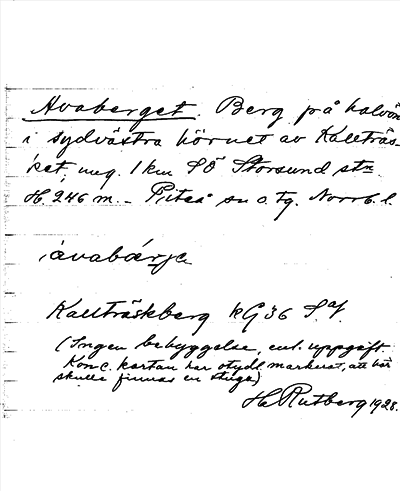 Avaberget. Berg på halvön
i sydvästra hörnet av Kallträs-
ket, ung. 1 km SÖ Storsund stn
H. 246 m. - Piteå sn o. tg. Norrb. l.
Kallträskberg kG 36 S.
(Ingen bebyggelse, enl. uppgift.
Konc. kartan har otydl. markerat, att här
skulle finnas en stuga)
H. Rutberg 1928.